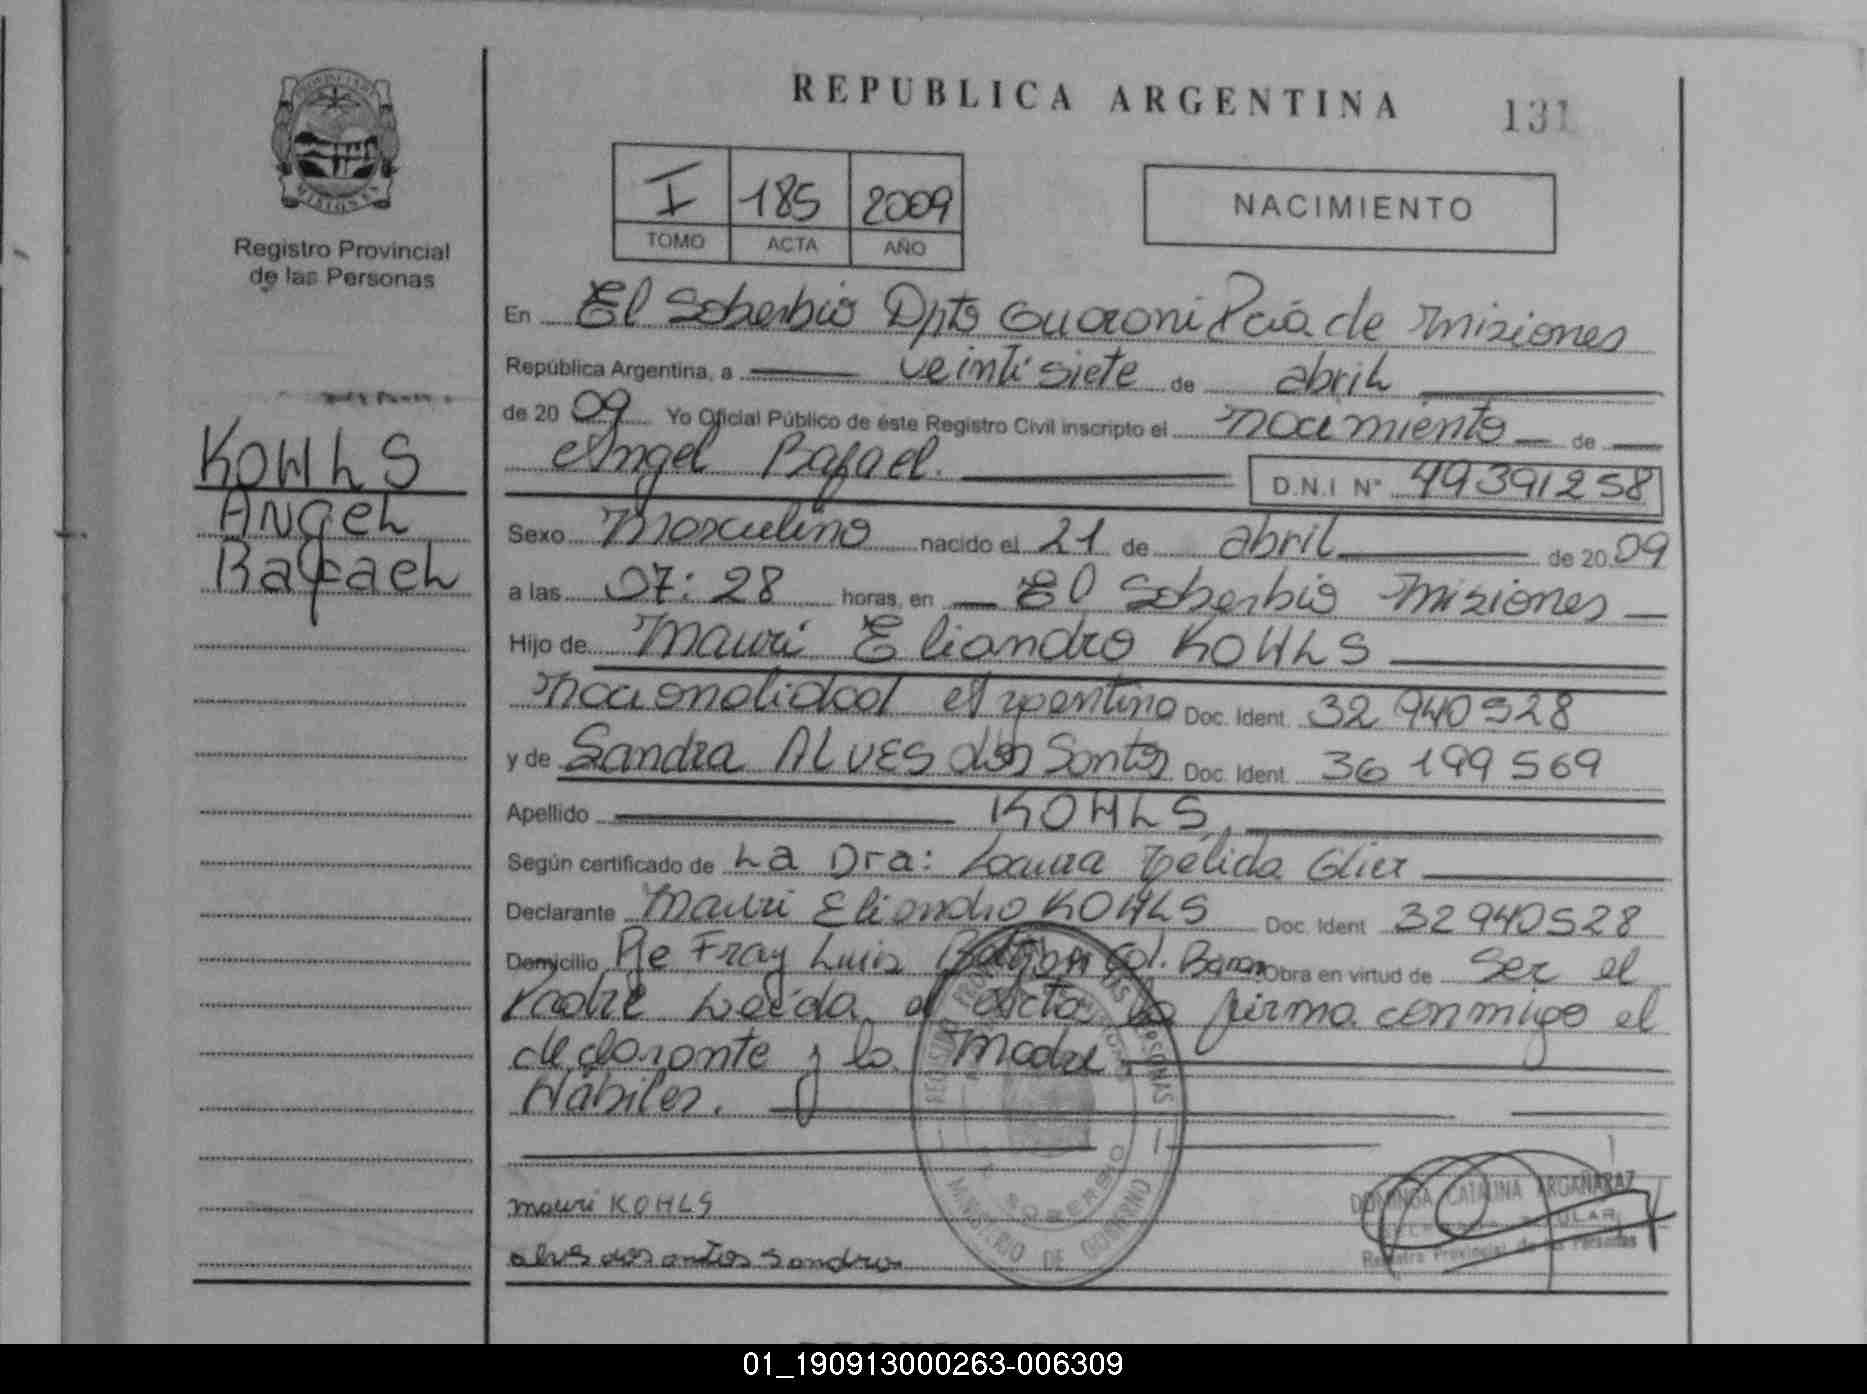 REPUBLICA ARGENTINA 131
Registro Provincial
de las Personas
I 185 2009
TOMO ACTA AÑO
NACIMIENTO
KOHLS
Angel
Rafael
En El Soberbio Dpto Guarani Pcia de Misiones
República Argentina, a veintisiete de abril
de 20 09 Yo Oficial Público de éste Registro Civil inscripto el nacimiento de
Angel Rafael. D.N.I Nº 49391258
Sexo Masculino nacido el 21 de abril de 20 09
a las 07:28 horas, en El Soberbio Misiones
Hijo de Mauri Eliandro KOHLS
Nacionalidad Argentino Doc. Ident. 32 940 528
y de Sandra ALVES dos Santos Doc. Ident. 36 199 569
Apellido KOHLS
Según certificado de La Dra: Laura Glier
Declarante Mauri Eliandro KOHLS Doc. Ident 32940528
Domicilio Pje Fray Luis Col. Obra en virtud de Ser el
Padre Leida el Acta la firma conmigo el
declarante y la Madre
Hábiles.
mauri KOHLS
sandra
DOMINGA CATALINA ARGAÑARAZ
TITULAR
Registro Provincial de las Personas
MINISTERIO DE GOBIERNO
EL SOBERBIO
01_190913000263-006309